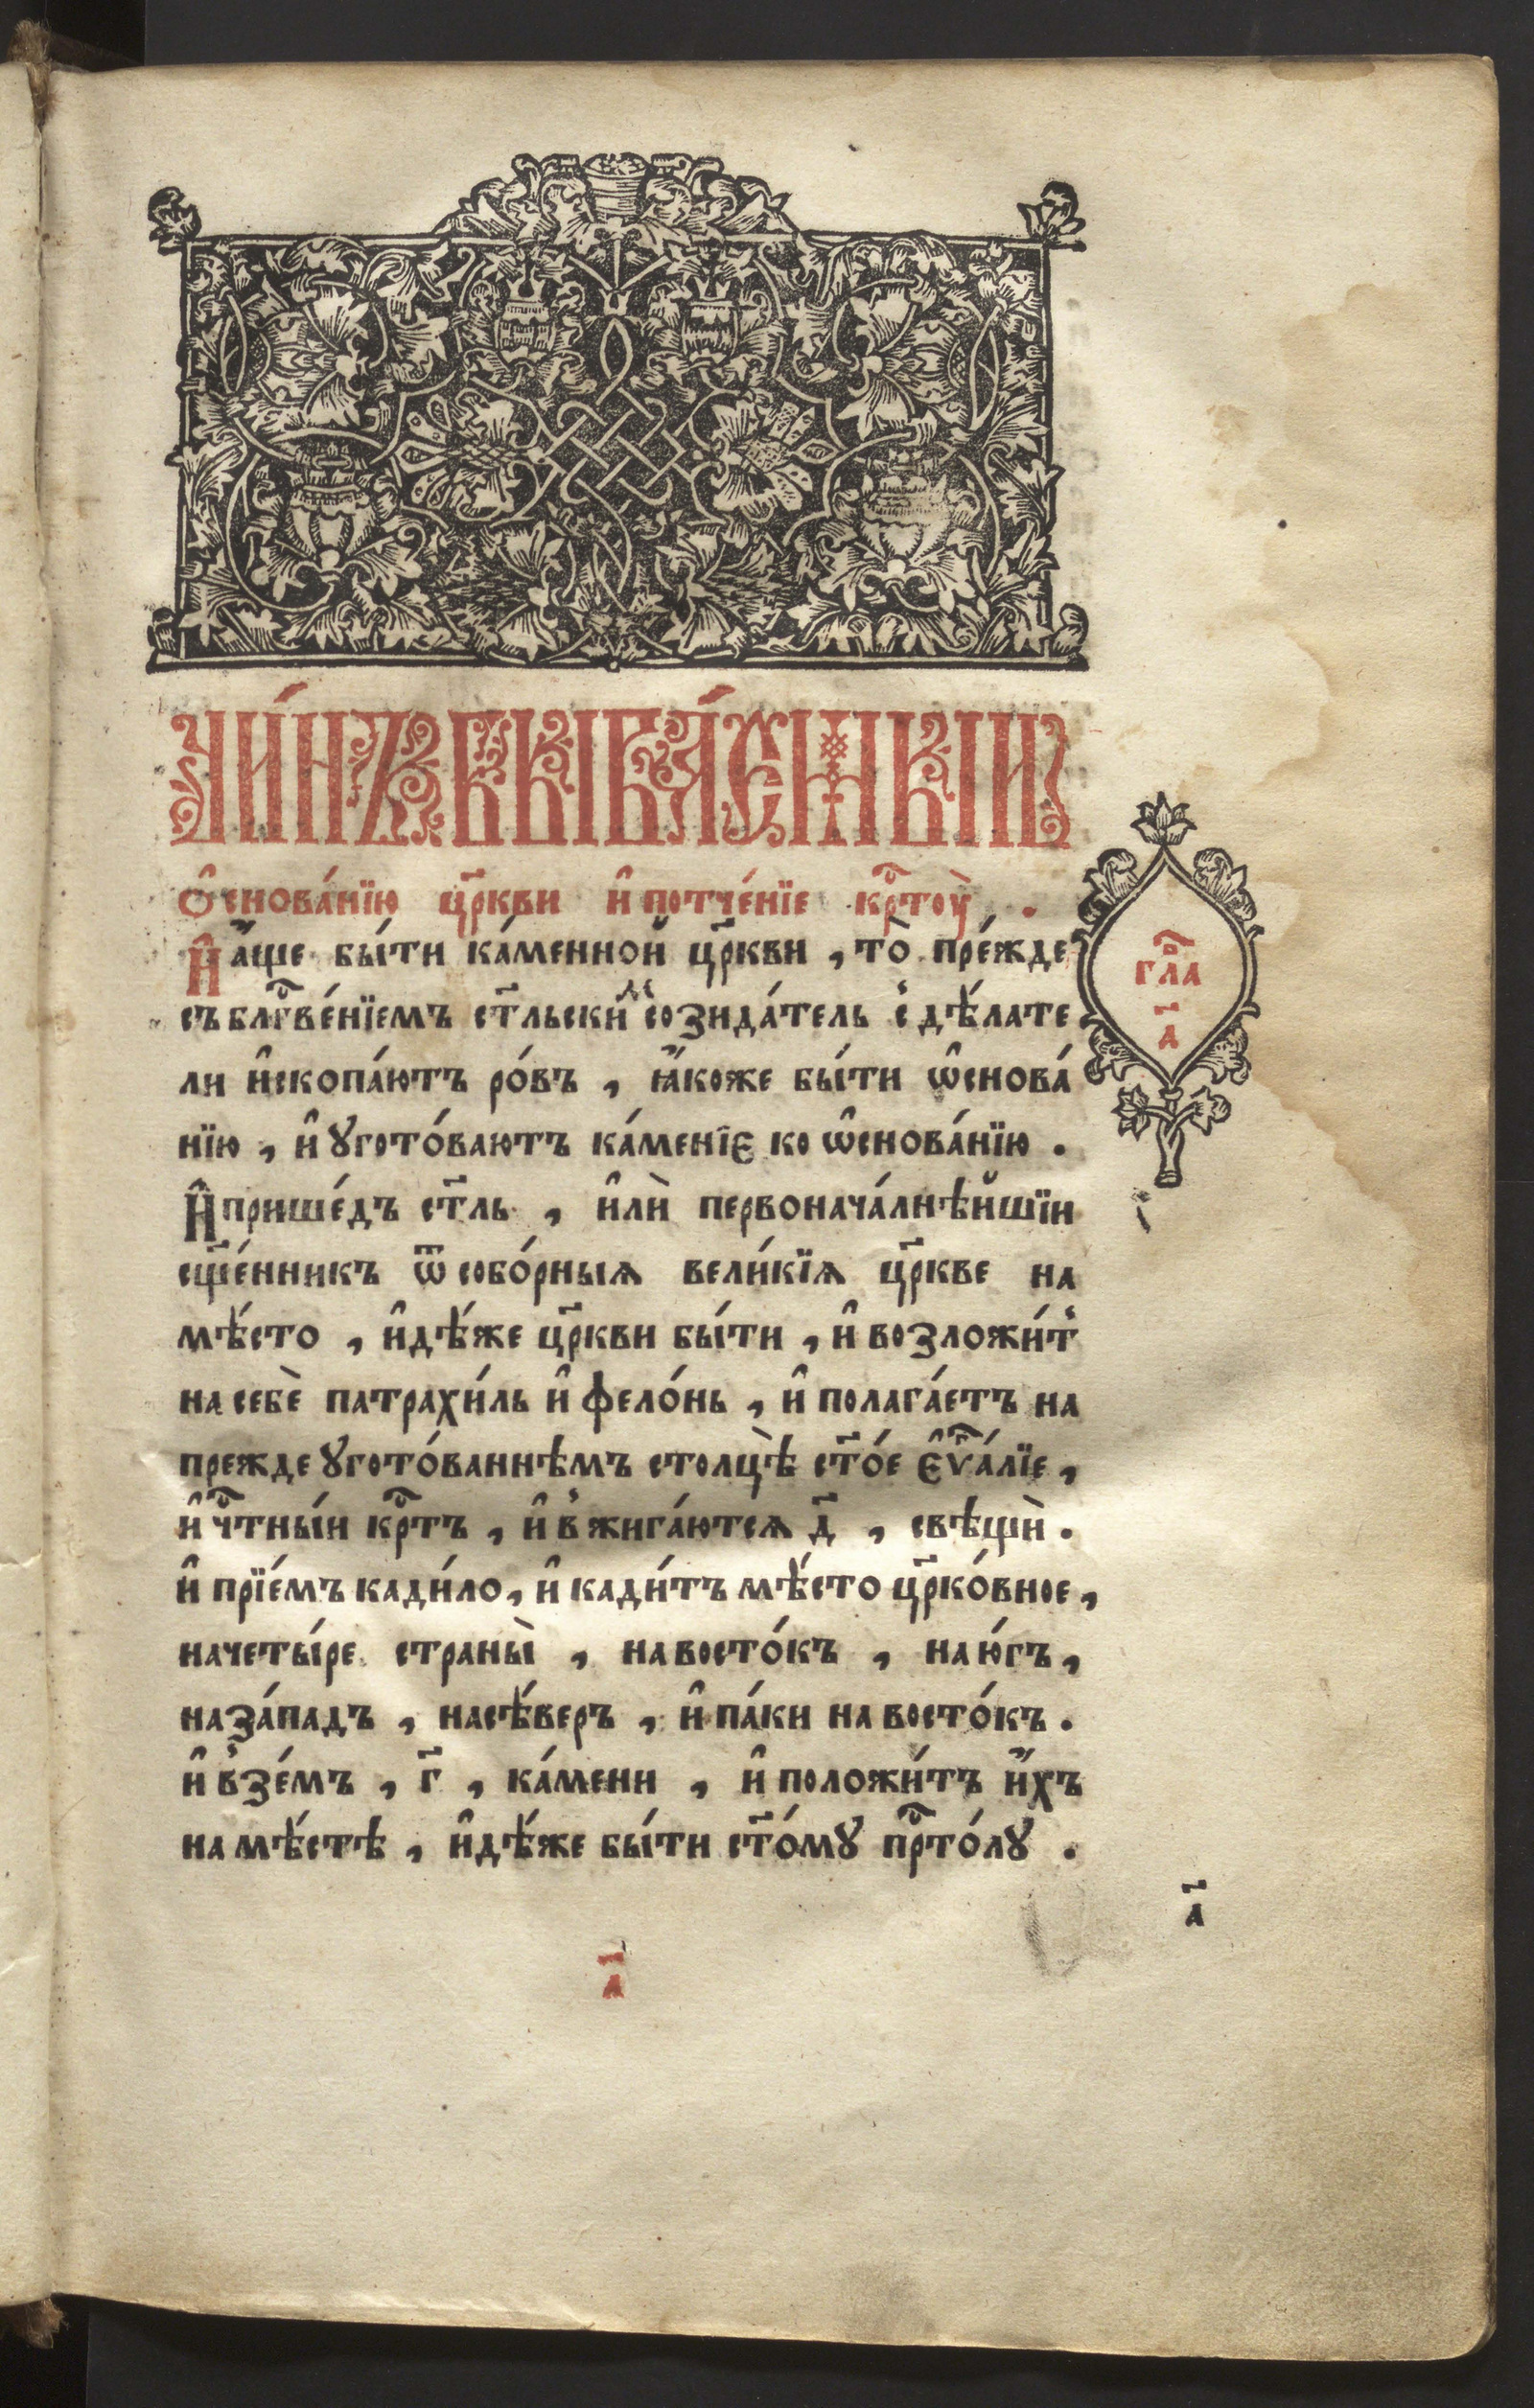 чи́нъ бы́ва́ємыи
ѻ҆снова́нїю цр҃кви и҆ потче́нїе крⷭ҇тоу̀ .
И҆ а҆́ще бы́ти ка́менной цр҃кви , то̀ пре́жде
съ блгⷭ҇ве́нїемъ ст҃льски́мⸯ созида́тель с̾ дѣ́лате
ли и҆скопа́ютъ ро́въ , ꙗ҆́коже бы́ти ѡ҆снова́
нїю , и҆ ᲂу҆гото́ваютъ ка́менїє ко ѡ҆снова́нїю .
И҆ прише́дъ ст҃ль , и҆лѝ первонача́лнѣйшїи
сщ҃е́нникъ ѿ собо́рныѧ вели́кїѧ цр҃кве на
мѣ́сто , и҆дѣ́же цр҃кви бы́ти , и҆ возложи́т̾
на себѐ патрахи́ль и҆ фело́нь , и҆ полага́етъ на
прежде ᲂу҆гото́ваннѣмъ столцѣ̀ ст҃о́е є҆ѵⷢ҇а́лїе ,
и҆ чⷭ҇тны́и крⷭ҇тъ , и҆ в̾жига́ютсѧ д҃ , свѣщѝ .
и҆ прїе́мъ кади́ло , и҆ кади́тъ мѣ́сто цр҃ко́вное ,
на четы́ре страны̀ , на восто́къ , на ю҆́гъ ,
на за́падъ , на сѣ́веръ , и҆ па́ки на восто́къ .
и҆ в̾зе́мъ , г҃ , ка́мени , и҆ положи́тъ и҆́хъ
на мѣ́стѣ , и҆дѣ́же бы́ти ст҃о́мꙋ прⷭ҇то́лꙋ .
глⷡ҇а
а҃
а҃
а҃